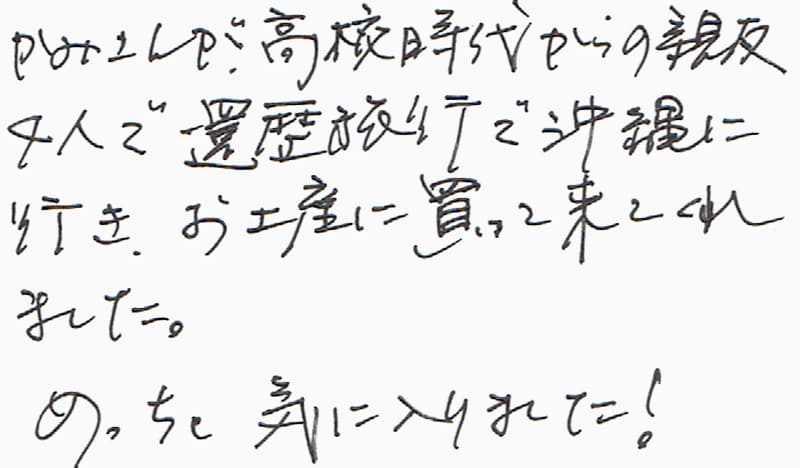 かみさんが、高校時代からの親友
4人で還歴旅行で沖縄に
行き、お土産に買って来てくれ
ました。
めっちゃ気に入りました!